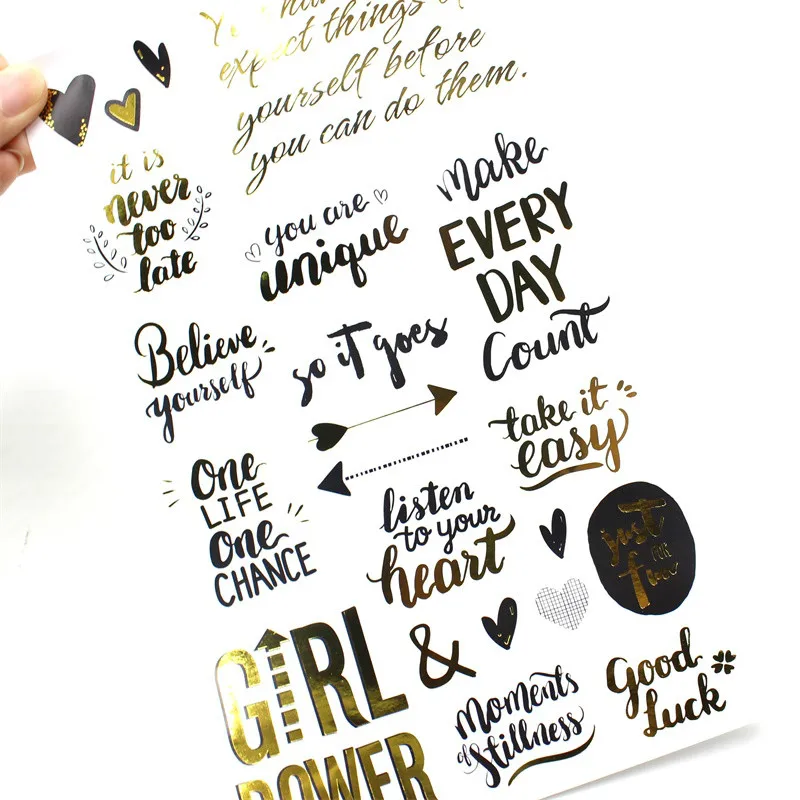 You have
expect things of
yourself before
you can do them.
it is
never
too
late
you are
unique
make
EVERY
DAY
Count
Believe
yourself
so it goes
take it
easy
One
LIFE
One
CHANCE
listen
to your
heart
just
FOR
fun
GIRL
POWER
&
Moments
of Stillness
Good
Luck